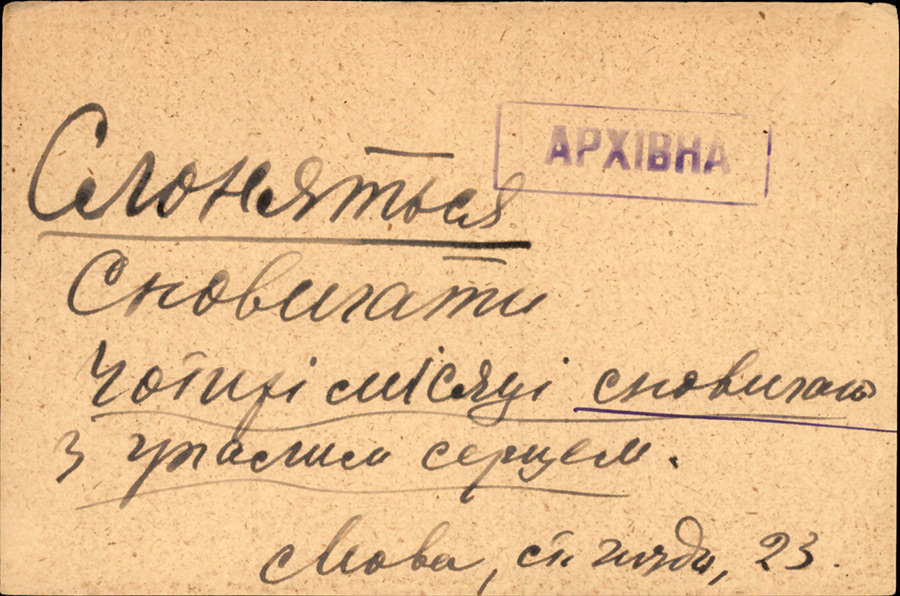 АРХІВНА
Слоняться
Сновигати
Чотирі місяці сновигаю
з угаслим серцем.
Мова, ст. 23.